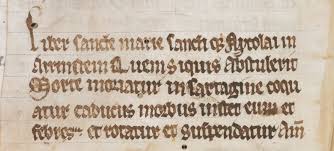 Liber sancte marie sancti qȝ Nycolai in
Arrinstein Quem siquis abstulerit
Morte moriatur in sartagine coqu
atur caducus morbus instet eum et
febres et rotatur et suspendatur Am̄